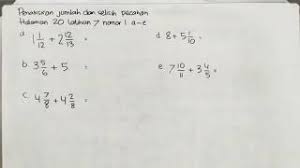 Penaksiran jumlah dan selisih pecahan
Halaman 20 latihan 7 nomor 1 a-e
a. 1 1/12 + 2 12/13 =
b. 3 5/6 + 5 =
c. 4 7/8 + 4 2/8 =
d. 8 + 5 1/10 =
e. 7 10/11 + 3 4/5 =